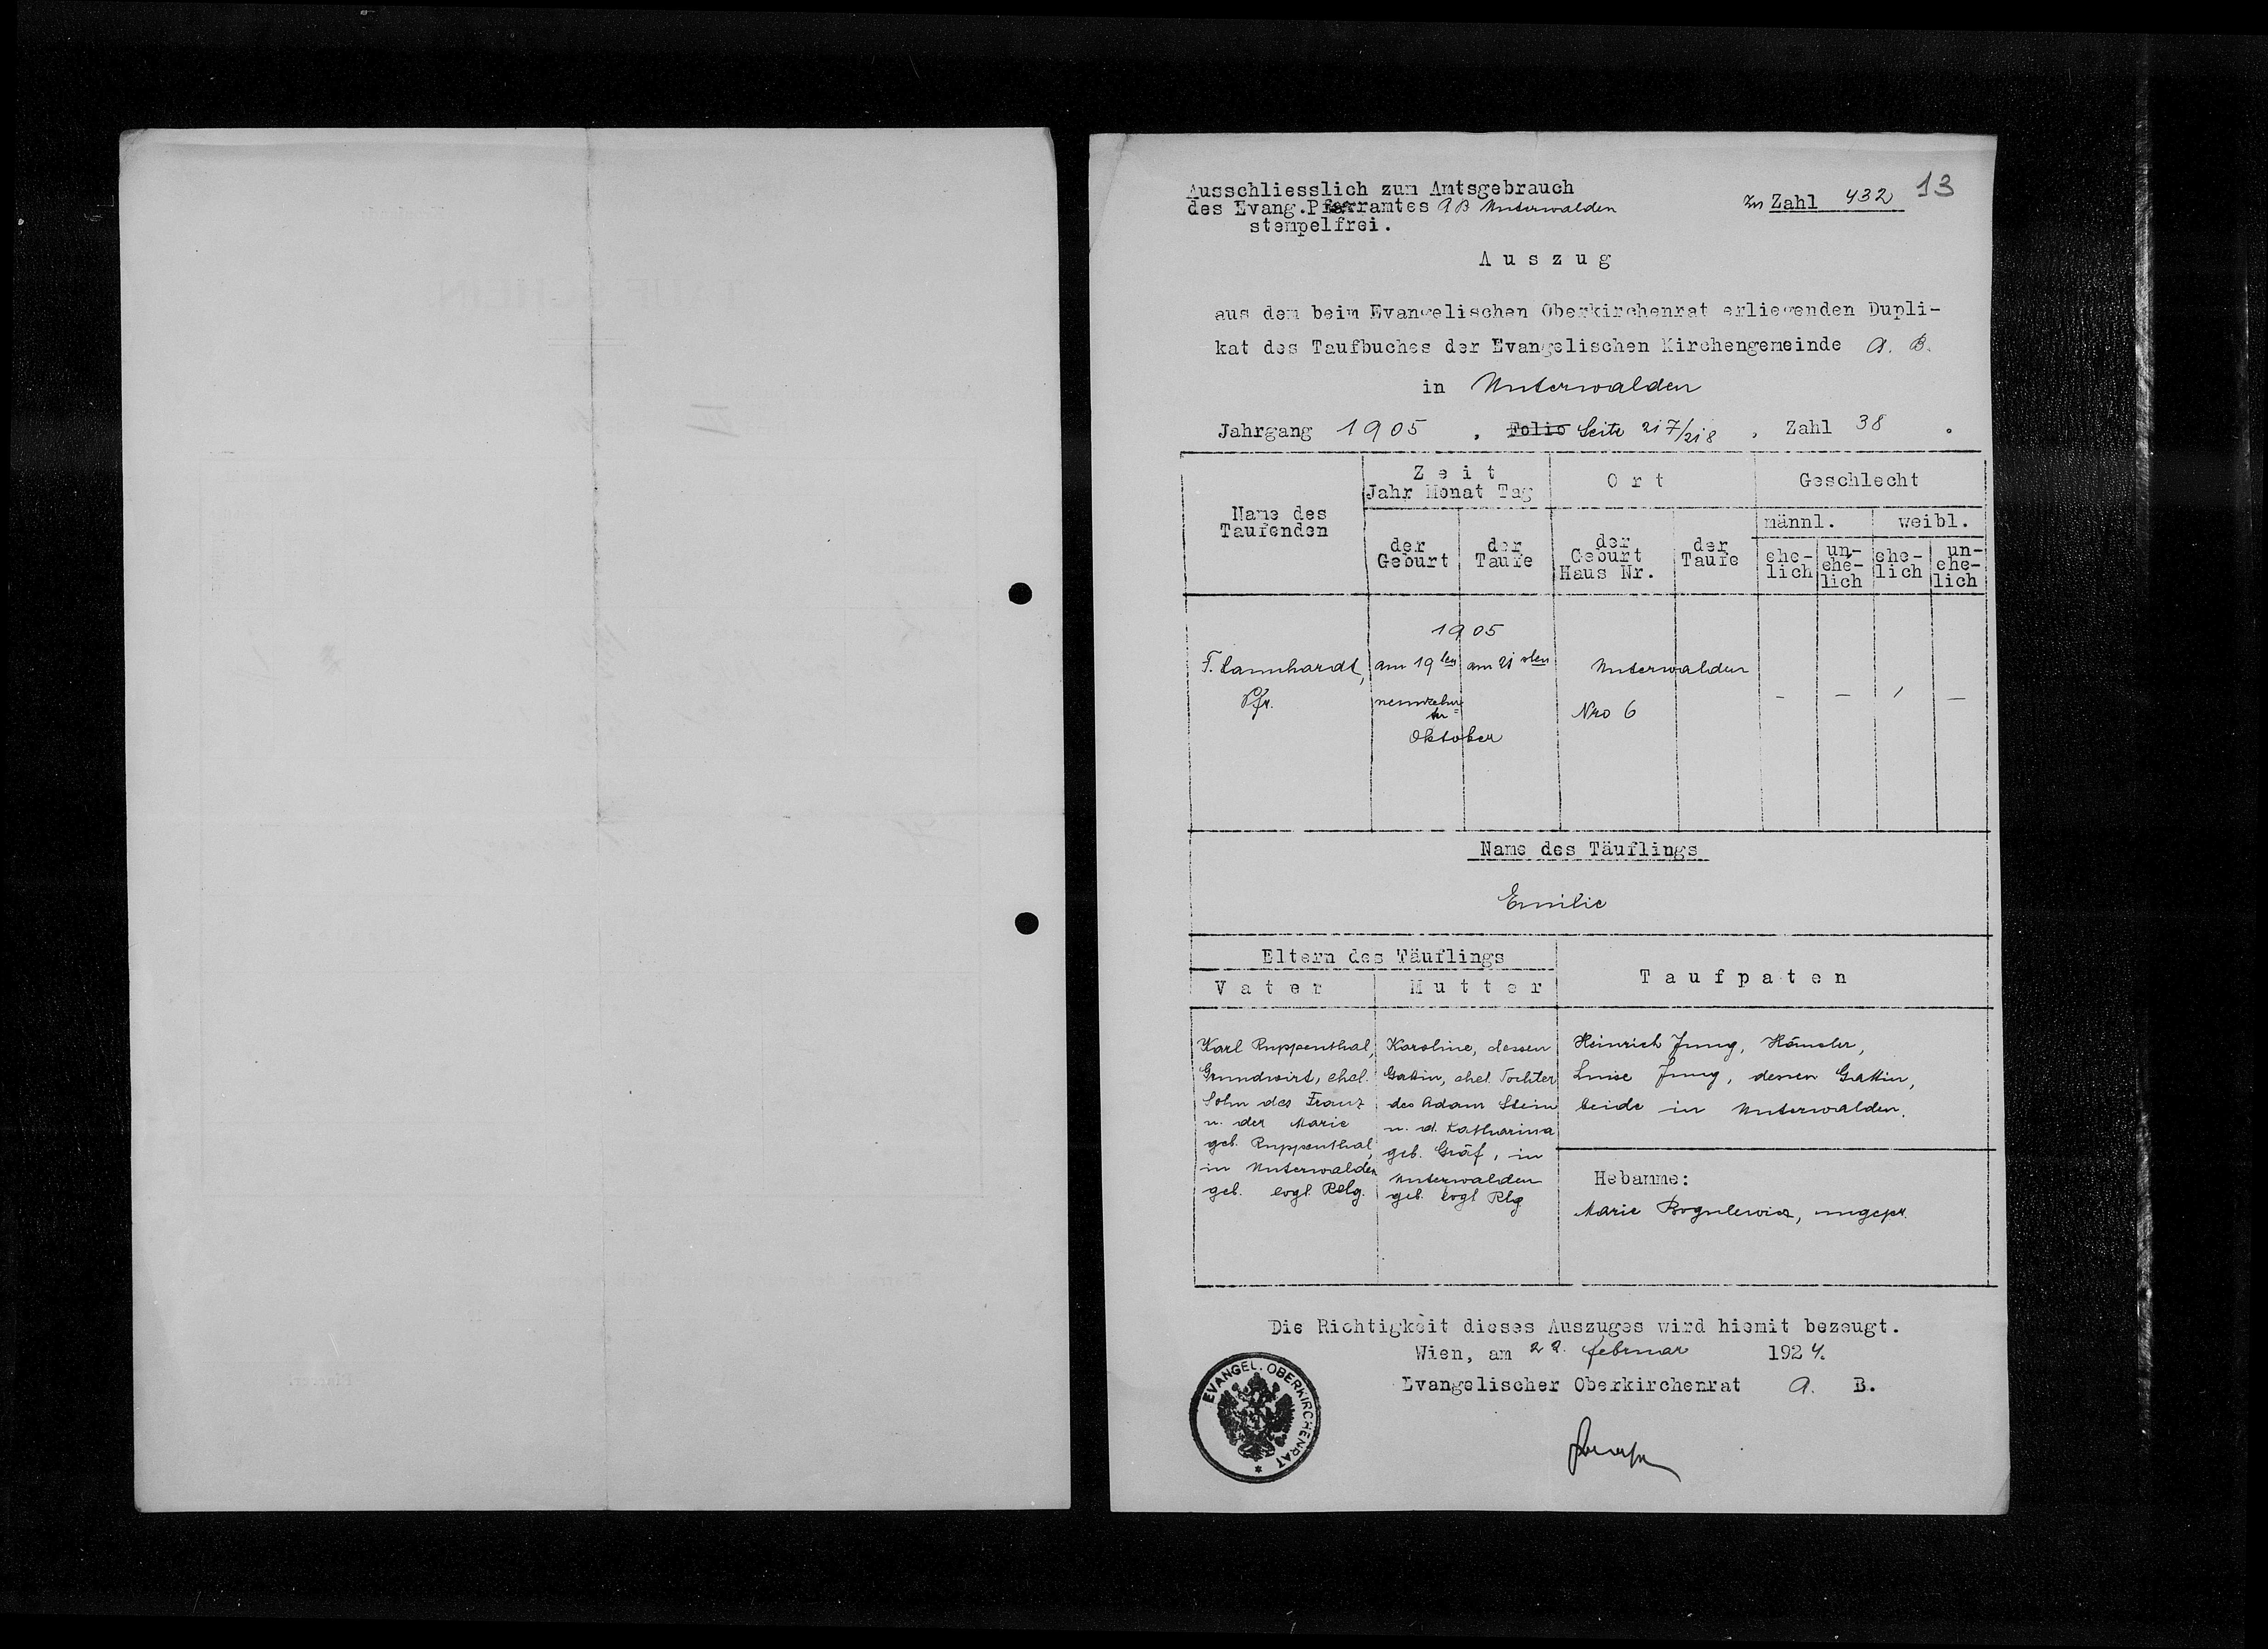 Ausschliesslich zum Amtsgebrauch
des Evang.Pfarramtes AB Unterwalden
stempelfrei.
zu Zahl 432
13
Auszug
aus dem beim Evangelischen Oberkirchenrat erliegenden Dupli-
kat des Taufbuches der Evangelischen Kirchengemeinde A. B.
in Unterwalden
Jahrgang 1905 , Folio Seite 217/218 , Zahl 38 .
Name des
Taufenden
Zeit
Jahr Monat Tag
der
Geburt
der
Taufe
Ort
der
Geburt
Haus Nr.
der
Taufe
Geschlecht
männl.
weibl.
ehe-
lich
un-
ehe-
lich
ehe-
lich
un-
ehe-
lich
1905
F. Lannhardt,
Pfr.
am 19ten
neunzehn-
ten
am 21sten
Oktober
Unterwalden
Nro 6
- - / -
Name des Täuflings
Emilie
Eltern des Täuflings
Vater
Mutter
Taufpaten
Karl Ruppenthal,
Grundwirt, ehel.
Sohn des Franz
u. der Marie
geb. Ruppenthal,
in Unterwalden
geb. evgl. Relg.
Karoline, dessen
Gattin, ehel. Tochter
des Adam Stein
u. d. Katharina
geb. Gräf, in
Unterwalden
geb. evgl Rlg
Heinrich Jung, Häusler,
Luise Jung, dessen Gattin,
beide in Unterwalden.
Hebamme:
Marie Bogulewicz, ungepr.
Die Richtigkeit dieses Auszuges wird hiemit bezeugt.
Wien, am 22. Februar 1924.
Evangelischer Oberkirchenrat A. B.
EVANGEL. OBERKIRCHENRAT